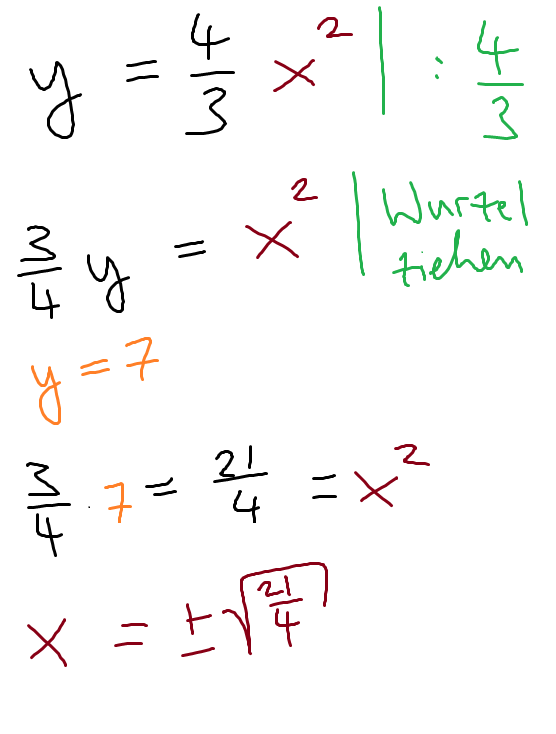 y = 4/3 x² | : 4/3
3/4 y = x² | Wurzel
ziehen
y = 7
3/4 · 7 = 21/4 = x²
x = ±√(21/4)